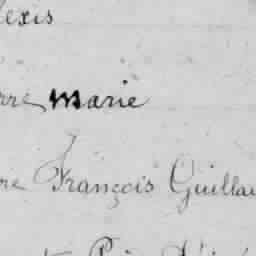 lexis
rre marie
re François Guillau